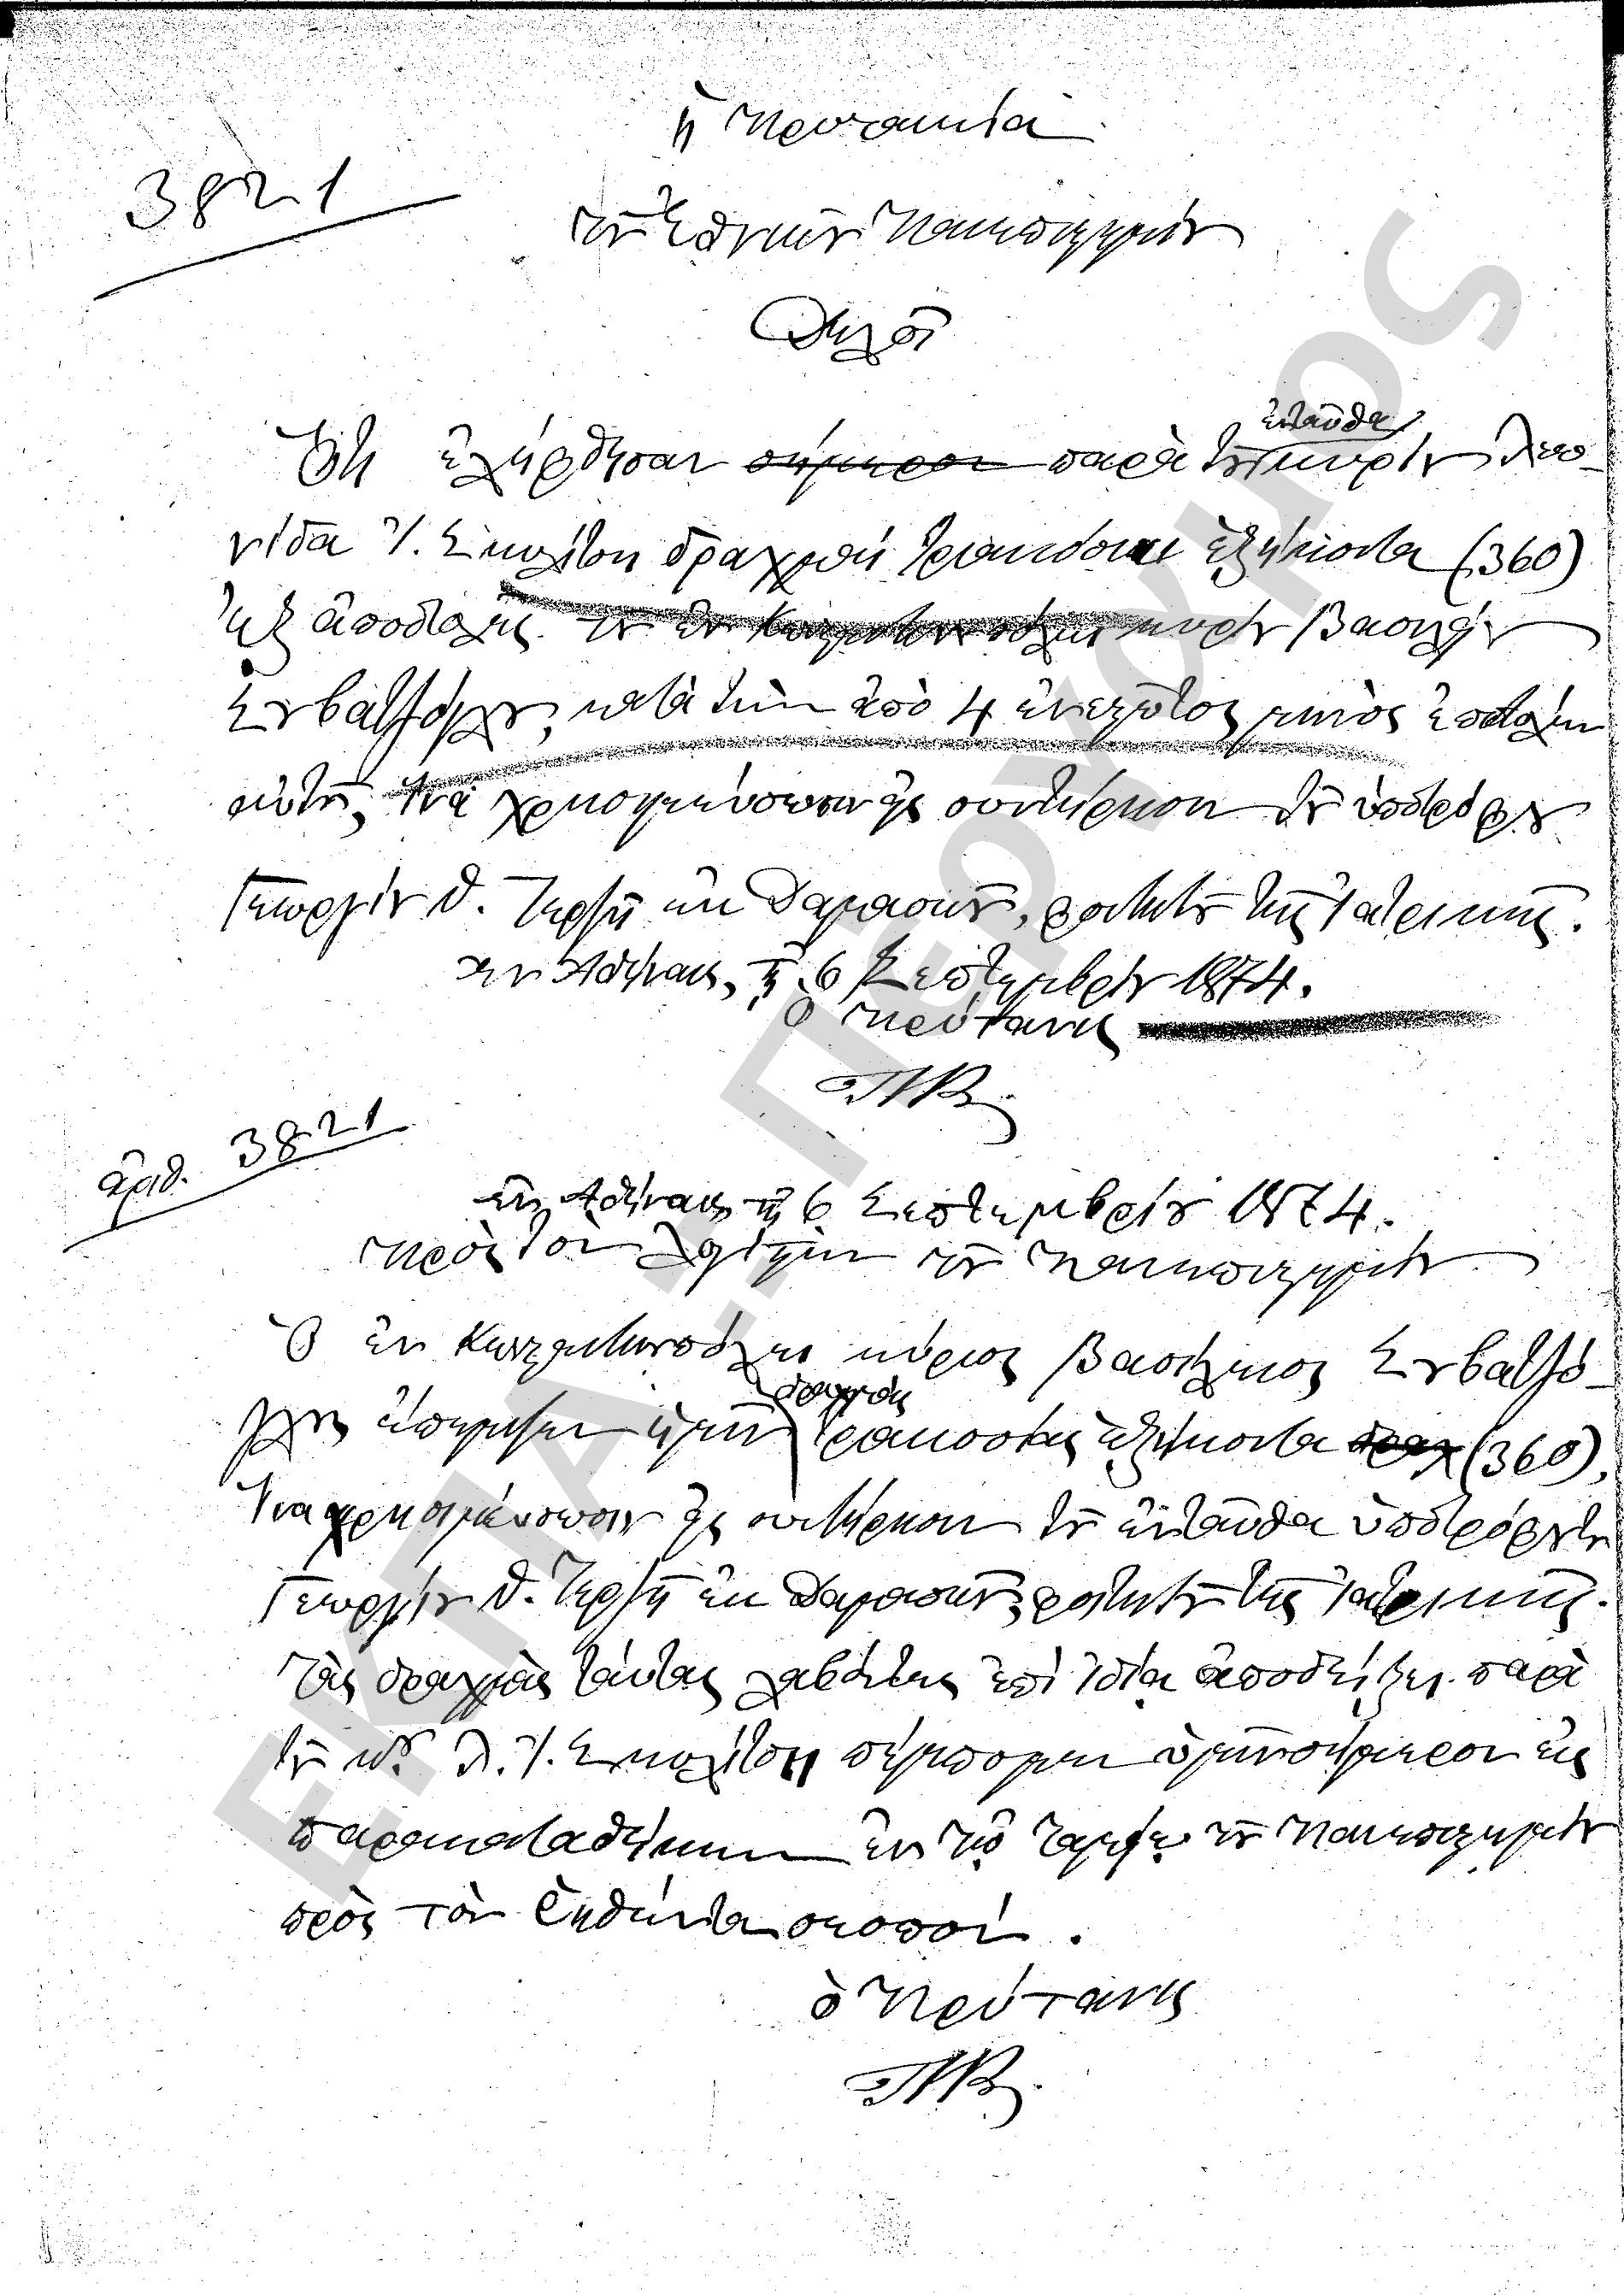 ἡ Πρυτανεία
3821
τοῦ Ἐθνικοῦ Πανεπιστημίου
Δηλοῖ
ἐνταῦθα
Ὅτι ἐλήφθησαν σήμερον παρὰ τοῦ κυρίου Λεω-
νίδα Ἰ. Σκυλίτση δραχμαὶ τριακόσιαι ἑξήκοντα (360)
ἐξ ἀποστολῆς τοῦ ἐν Κωνσταντινουπόλει κυρίου Βασιλείου
κατὰ τὴν ἀπὸ 4 ἐνεστῶτος μηνὸς ἐπιστολὴν
αὐτοῦ, ἵνα χρησιμεύσωσιν εἰς συντήρησιν τοῦ ὑποτρόφου
Γεωργίου Θ. ἐκ Δαμασκοῦ, φοιτητοῦ τῆς Ἰατρικῆς.
ἐν Ἀθήναις, τῇ 6 Σεπτεμβρίου 1874.
ὁ Πρύτανης
ἀριθ. 3821
ἐν Ἀθήναις τῇ 6 Σεπτεμβρίου 1874.
Πρὸς τὸν τοῦ Πανεπιστημίου
Ὁ ἐν Κωνσταντινουπόλει κύριος Βασίλειος
δραχμὰς
ἡμῖν τριακοσίας ἑξήκοντα δραχ (360),
ἵνα χρησιμεύσωσιν εἰς συντήρησιν τοῦ ἐνταῦθα ὑποτρόφου του
Γεωργίου Θ. ἐκ Δαμασκοῦ, φοιτητοῦ τῆς Ἰατρικῆς.
Τὰς δραχμὰς ταύτας λαβόντες ἐπὶ ἰδίᾳ ἀποδείξει παρὰ
τοῦ κου. Λ. Ἰ. Σκυλίτση πέμπομεν ὑμῖν σήμερον εἰς
παρακαταθήκην ἐν τῷ Ταμείῳ τοῦ Πανεπιστημίου
πρὸς τὸν ῥηθέντα σκοπόν.
ὁ Πρύτανης
ΕΚΠΑ - ΠΕΡΓΑΜΟΣ